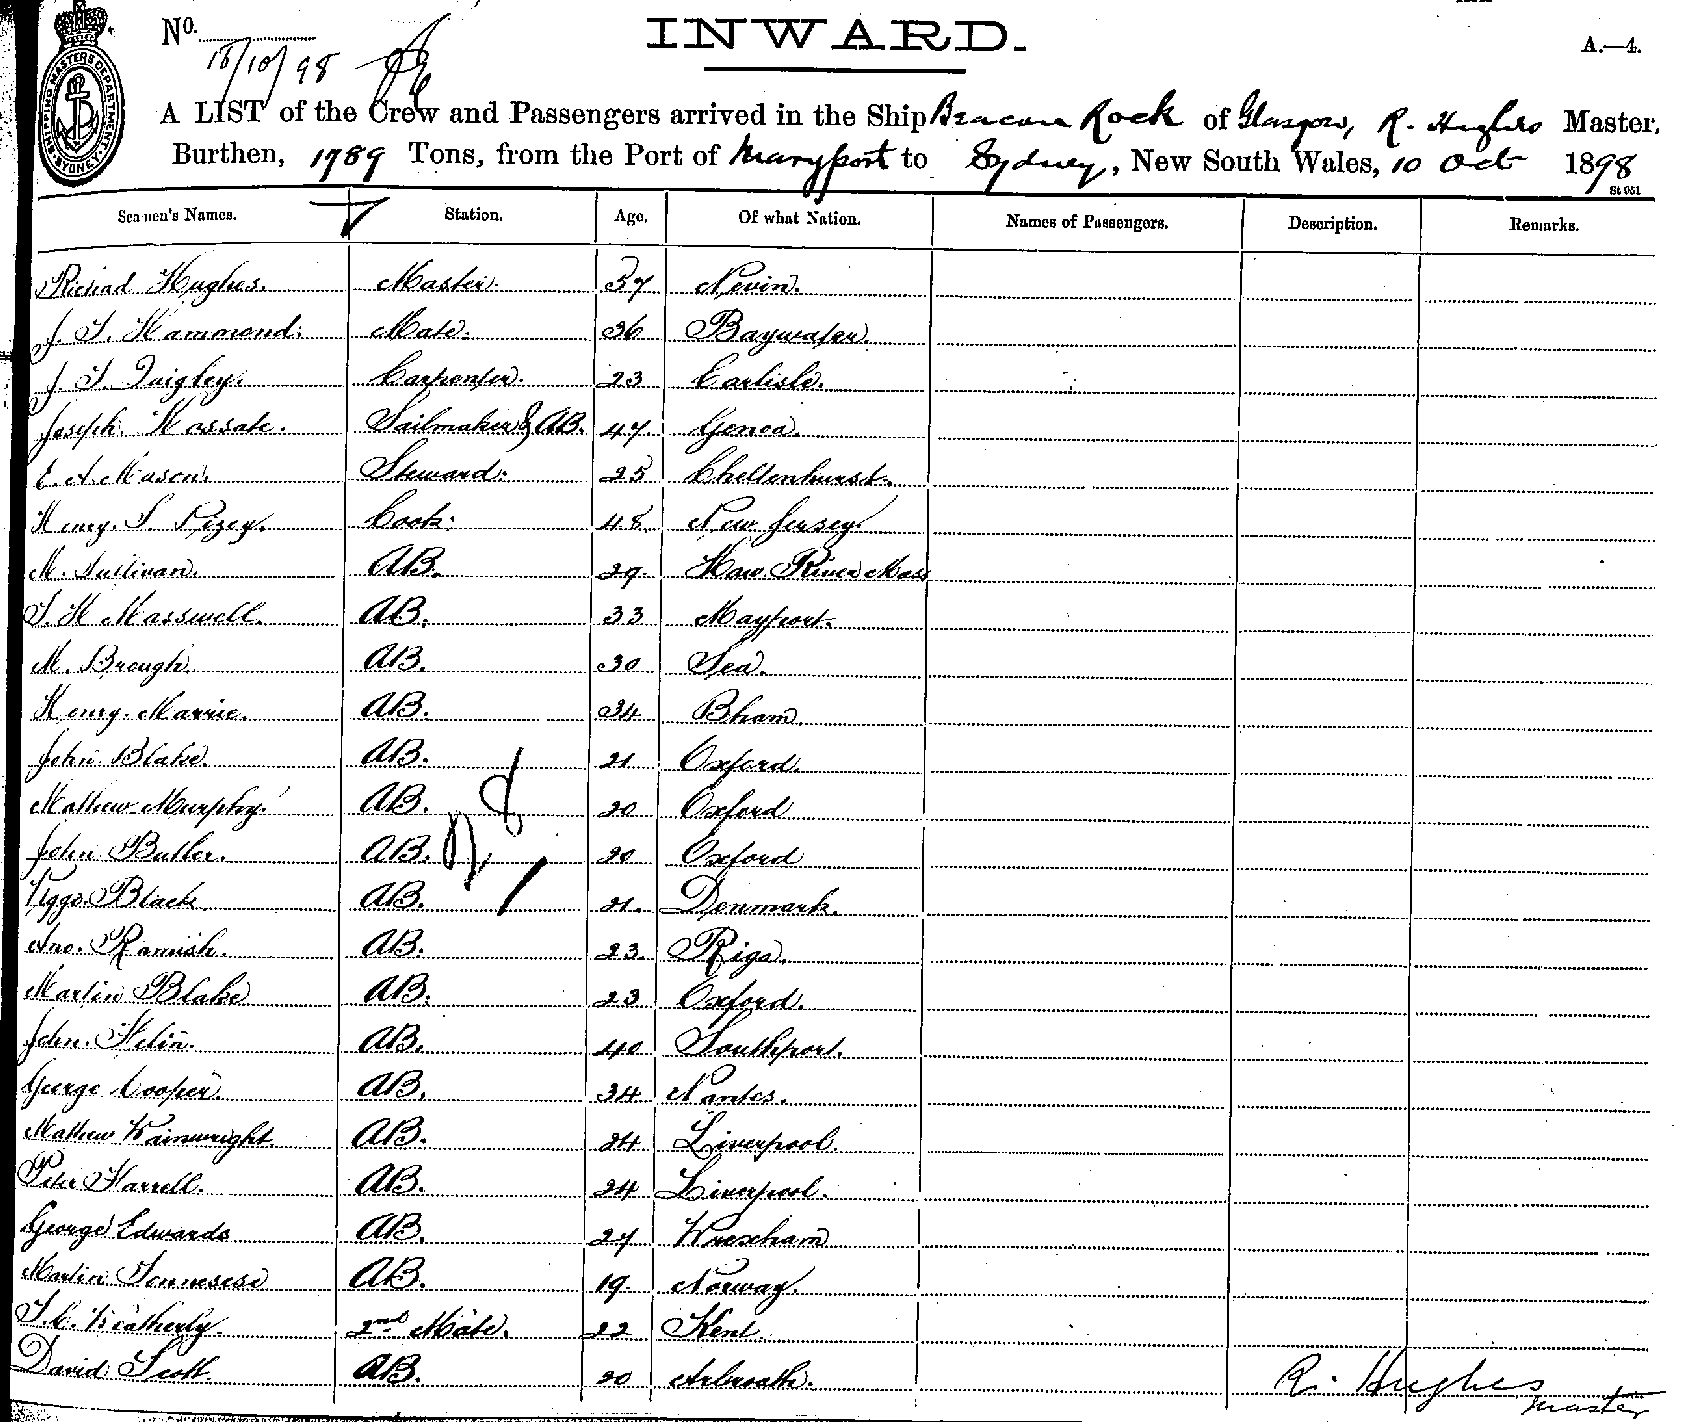 No.
INWARD.
A.—4.
18/10/98
SHIPPING MASTERS DEPARTMENT SYDNEY
A LIST of the Crew and Passengers arrived in the Ship Beacon Rock of Glasgow, R. Hughes Master,
Burthen, 1789 Tons, from the Port of Maryport to Sydney, New South Wales, 10 Oct 1898
St 951
Seamen's Names. Station. Age. Of what Nation. Names of Passengers. Description. Remarks.
Richard Hughes. Master. 37 Nevin.
J. T. Hammond. Mate. 36 Baywater.
J. T. Quigley. Carpenter. 23 Carlisle.
Joseph Hassate. Sailmaker & AB. 47 Genoa.
E. A. Mason. Steward. 25 Cheltenhurst.
Henry. S. Pizey. Cook. 48 New Jersey
M. Sullivan. AB. 29 River Mass
T. H Masswell. AB. 33 Mayport.
M. Brough. AB. 30 Sea.
Henry. AB. 34 Bham.
John Blake. AB. 21 Oxford.
Mathew Murphy. AB. 20 Oxford
John Butler. AB. 20 Oxford
Viggo Black. AB. 21. Denmark.
Jno. Ramish. AB. 23. Riga.
Martin Blake AB. 23 Oxford.
John. AB. 40 Southport.
George Cooper. AB. 34 Nantes.
Mathew Wainwright. AB. 24 Liverpool.
Peter Harrell. AB. 24 Liverpool.
George Edwards AB. 27 Wrexham
Martin AB. 19 Norway.
T. C. Weatherly. 2nd Mate. 22 Kent
David Scott AB. 20 Arbroath.
R. Hughes
Master